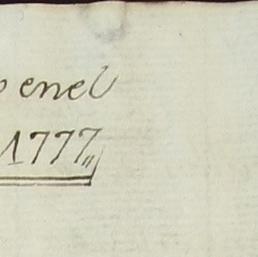 enel
1777,,